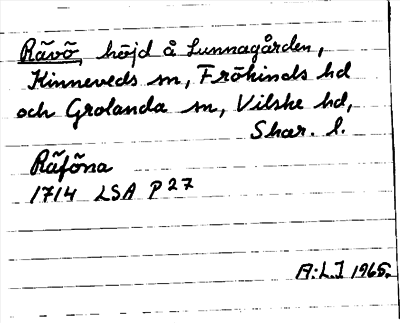 Rävö, höjd å Lunnagården,
Kinneveds sn, Frökinds hd
och Grolanda sn, Vilske hd,
Skar. l.
Räföna
1714 LSA P27
A:L.I 1965.